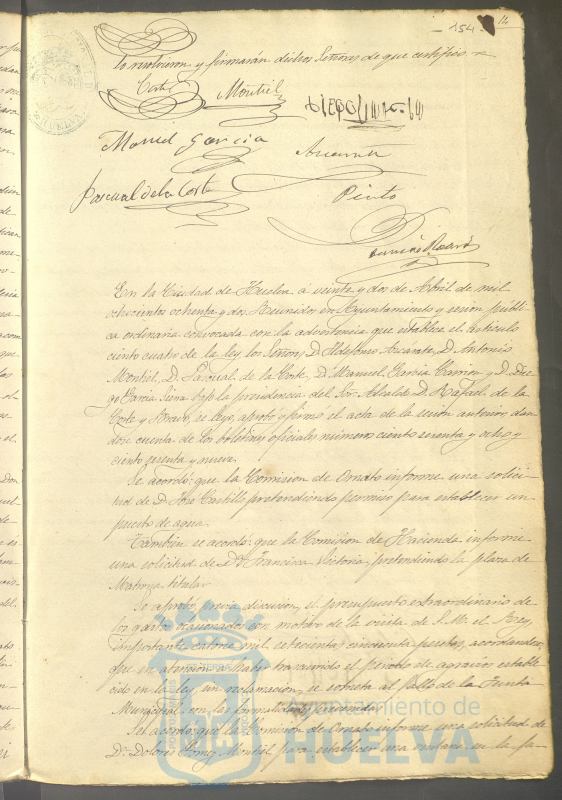 154 14
lo resolvieron y firmarán dichos Señores de que certifico.
Corte Montiel
Manuel Garcia Azcarate
Pascual de la Corte Pinto
HUELVA
En la Ciudad de Huelva á veinte y dos de Abril de mil
ochocientos ochenta y dos Reunidos en Ayuntamiento y sesion públi-
ca ordinaria convocada con la advertencia que establece el articulo
ciento cuatro de la ley los Señores D. Ildefonso Azcárate, D. Antonio
Montiel, D. Pascual de la Corte, D. Manuel Garcia Carrion y D. Die-
go Garcia bajo la presidencia del Sor. Alcalde D. Rafael de la
Corte y Bravo, se leyó, aprobó y firmó el acta de la sesion anterior, dan-
dose cuenta de los boletines oficiales número ciento sesenta y ocho y
ciento sesenta y nueve.
Se acordó: que la Comision de Ornato informe una solici-
tud de D. José Castillo pretendiendo permiso para establecer un
puesto de agua.
Tambien se acordó: que la Comision de Hacienda informe
una solicitud de Da. Francisca Victoria, pretendiendo la plaza de
Matrona titular
Se aprobó, previa discusion, el presupuesto extraordinario de
los gastos ocasionados con motivo de la visita de S. M. el Rey,
importante catorce mil setecientas cincuenta pesetas, acordandose
que en atencion á haber trascurrido el periodo de agravios estable-
cido en la ley, sin reclamacion, se someta al fallo de la Junta
Municipal con las formalidades
Se acordó: que la Comision de Ornato informe una solicitud de
Da. Dolores Gomez Montiel para establecer una ventana en la fa-
Ayuntamiento de
HUELVA